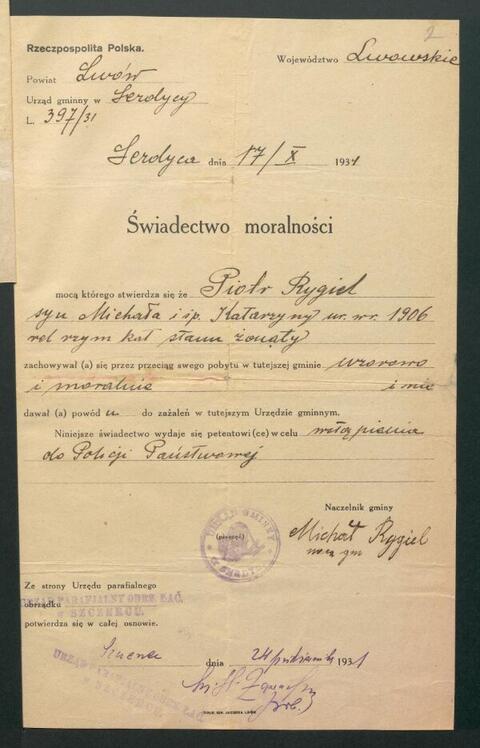 2
Rzeczpospolita Polska.
Województwo Lwowskie
Powiat Lwów
Urząd gminny w Serdycy
L. 397/31
Serdyca dnia 17/X 1931
Świadectwo moralności
mocą którego stwierdza się że Piotr Rygiel
syn Michała i śp. Katarzyny ur. w r. 1906
rel rzym kat stanu żonaty
zachowywał (a) się przez przeciąg swego pobytu w tutejszej gminie wzorowo
i moralnie i nie
dawał (a) powód u do zażaleń w tutejszym Urzędzie gminnym.
Niniejsze świadectwo wydaje się petentowi (ce) w celu wstąpienia
do Policji Państwowej
Naczelnik gminy
URZĄD GMINNY
(pieczęć)
w SERDYCY
Michał Rygiel
nacz gm
Ze strony Urzędu parafialnego
URZĄD PARAFJALNY OBRZ. ŁAĆ.
obrządku
w SZCZERCU.
potwierdza się w całej osnowie.
dnia 24 października 1931
URZĄD PARAFJALNY OBRZ. ŁAĆ.
w SZCZERCU